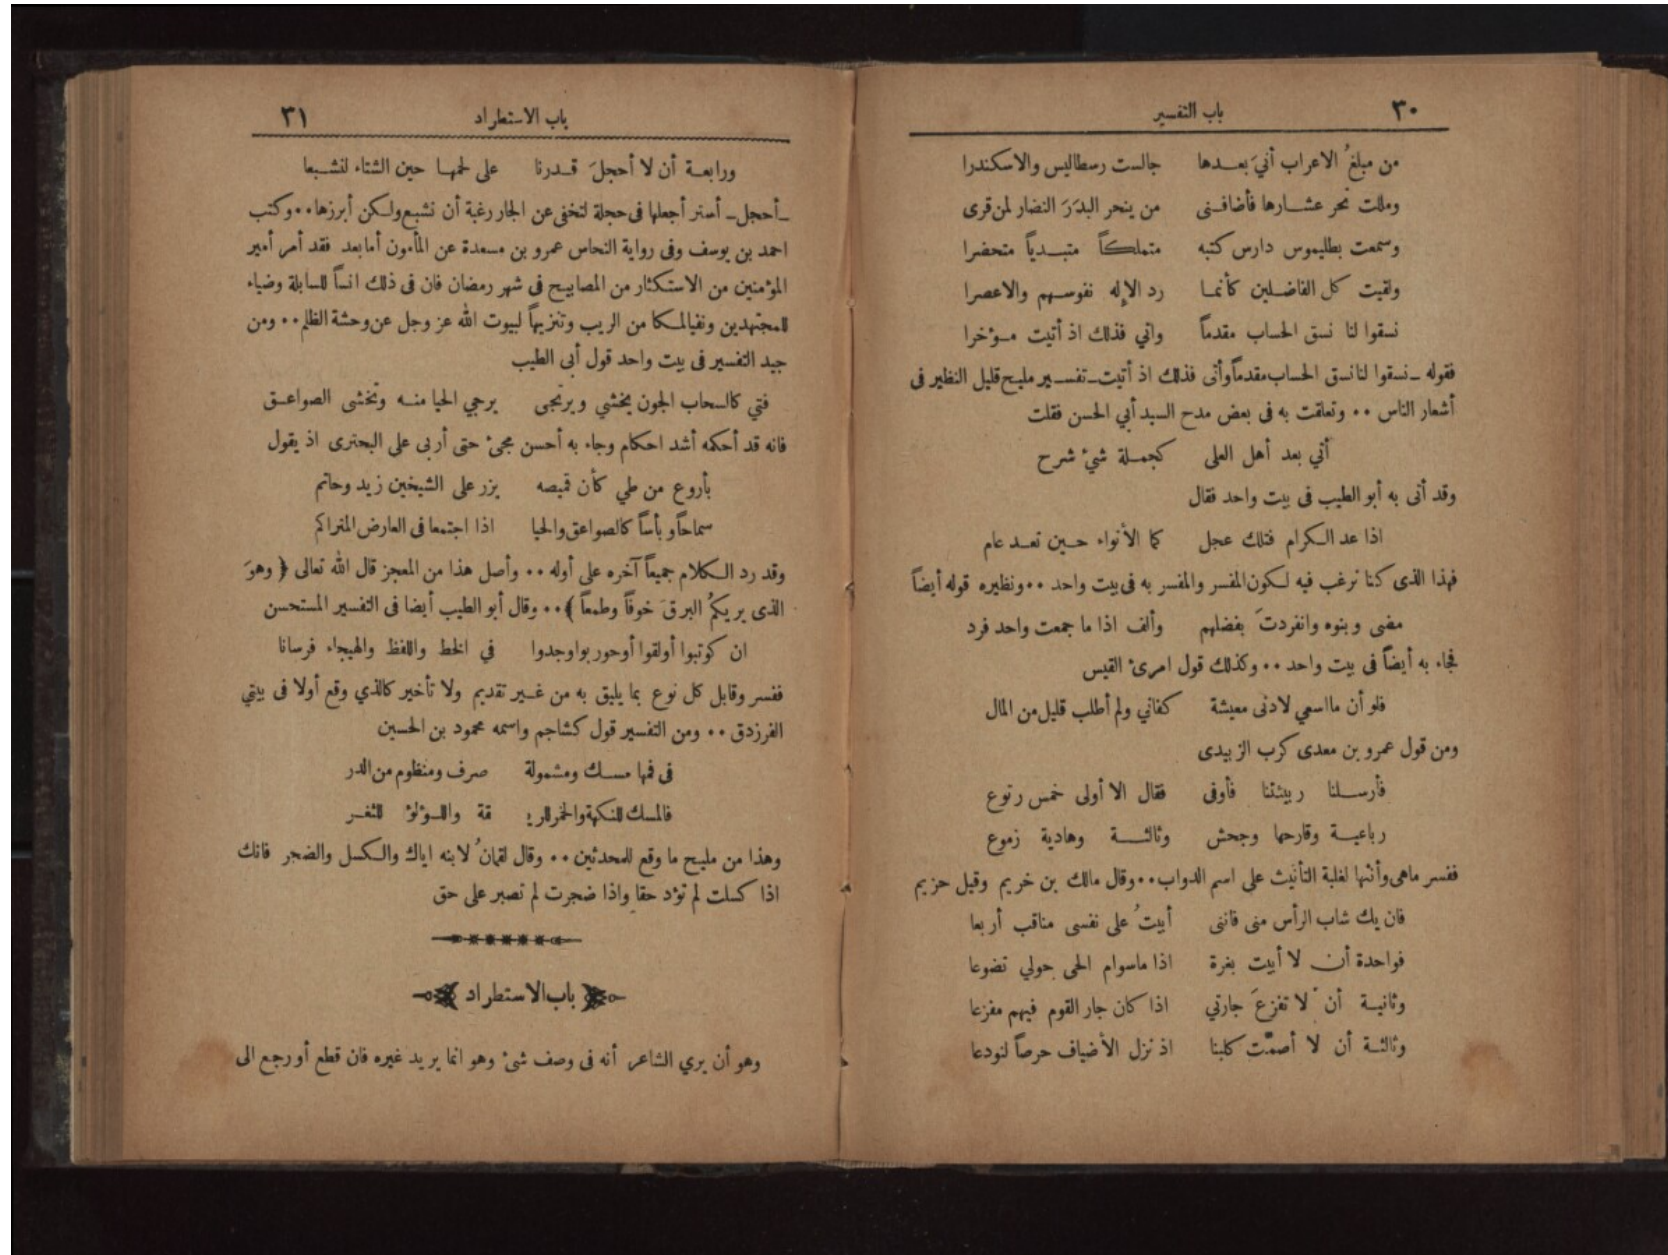 ٣٠ باب التفسير
من مبلغُ الاعراب أنيَ بعدها جالست رسطاليس والاسكندرا
ومللت نحر عشارها فأضافنى من ينحر البدَرَ النضار لمن قرى
وسمعت بطليموس دارس كتبه متملكاً متبدياً متحضرا
ولقيت كل الفاضلين كأنما رد الإله نفوسهم والاعصرا
نسقوا لنا نسق الحساب مقدماً واتي فذلك اذ أتيت مؤخرا
فقوله ـ نسقوا لنا نسق الحساب مقدماً وأتى فذلك اذ أتيت ـ تفسير مليح قليل النظير فى
أشعار الناس ٠٠ وتعلقت به فى بعض مدح السيد أبي الحسن فقلت
أتي بعد أهل العلى كجملة شئ شرح
وقد أتى به أبو الطيب فى بيت واحد فقال
اذا عد الكرام فتلك عجل كما الأنواء حين تعد عام
فهذا الذى كنا نرغب فيه لكون المفسر والمفسر به فى بيت واحد ٠٠ ونظيره قوله أيضاً
مضى وبنوه وانفردتَ بفضلهم وألف اذا ما جمعت واحد فرد
فجاء به أيضاً فى بيت واحد ٠٠ وكذلك قول امرئ القيس
فلو أن ما اسعي لادنى معيشة كفاني ولم أطلب قليل من المال
ومن قول عمرو بن معدى كرب الزبيدى
فأرسلنا ربيئتنا فأوفى فقال الا أولى خمس رتوع
رباعية وقارحها وجحش وثالثة وهادية زموع
ففسر ماهى وأنثها لغلبة التأنيث على اسم الدواب ٠٠ وقال مالك بن خريم وقيل حزيم
فان يك شاب الرأس منى فاننى أبيتُ على نفسى مناقب أربعا
فواحدة أن لا أبيت بغرة اذا ماسوام الحى حولي تضوعا
وثانية أن لا تفزعَ جارتي اذا كان جار القوم فيهم مفزعا
وثالثة أن لا أصمّت كلبنا اذ نزل الأضياف حرصاً لنودعا
باب الاستطراد ٣١
ورابعة أن لا أحجلَ قدرنا على لحمها حين الشتاء لنشبعا
ـ أحجل ـ أستر أجعلها فى حجلة لتخفى عن الجار رغبة أن نشبع ولكن أبرزها ٠٠ وكتب
احمد بن يوسف وفى رواية النحاس عمرو بن مسعدة عن المأمون أما بعد فقد أمر أمير
المؤمنين من الاستكثار من المصابيح فى شهر رمضان فان فى ذلك انساً للسابلة وضياء
للمجتهدين ونفيالمكا من الريب وتنزيهاً لبيوت الله عز وجل عن وحشة الظلم ٠٠ ومن
جيد التفسير فى بيت واحد قول أبى الطيب
فتي كالسحاب الجون يخشي ويرتجى يرجي الحيا منه وتخشى الصواعق
فانه قد أحكمه أشد احكام وجاء به أحسن مجئ حتى أربى على البحترى اذ يقول
بأروع من طي كأن قميصه يزر على الشيخين زيد وحاتم
سماحاً وبأساً كالصواعق والحيا اذا اجتمعا فى العارض المتراكم
وقد رد الكلام جميعاً آخره على أوله ٠٠ وأصل هذا من المعجز قال الله تعالى ﴿ وهوَ
الذى يريكمُ البرقَ خوفاً وطمعاً ﴾ ٠٠ وقال أبو الطيب أيضا فى التفسير المستحسن
ان كوتبوا أولقوا أوحوربوا وجدوا في الخط واللفظ والهيجاء فرسانا
ففسر وقابل كل نوع بما يليق به من غير تقديم ولا تأخير كالذي وقع أولا فى بيتي
الفرزدق ٠٠ ومن التفسير قول كشاجم واسمه محمود بن الحسين
فى فمها مسك ومشمولة صرف ومنظوم من الدر
فالمسك للنكهة والخمر للريـ قة واللؤلؤ للثغر
وهذا من مليح ما وقع للمحدثين ٠٠ وقال لقمانُ لابنه اياك والكسل والضجر فانك
اذا كسلت لم تؤد حقا واذا ضجرت لم تصبر على حق
باب الاستطراد
وهو أن يري الشاعر أنه فى وصف شئ وهو انما يريد غيره فان قطع أو رجع الى